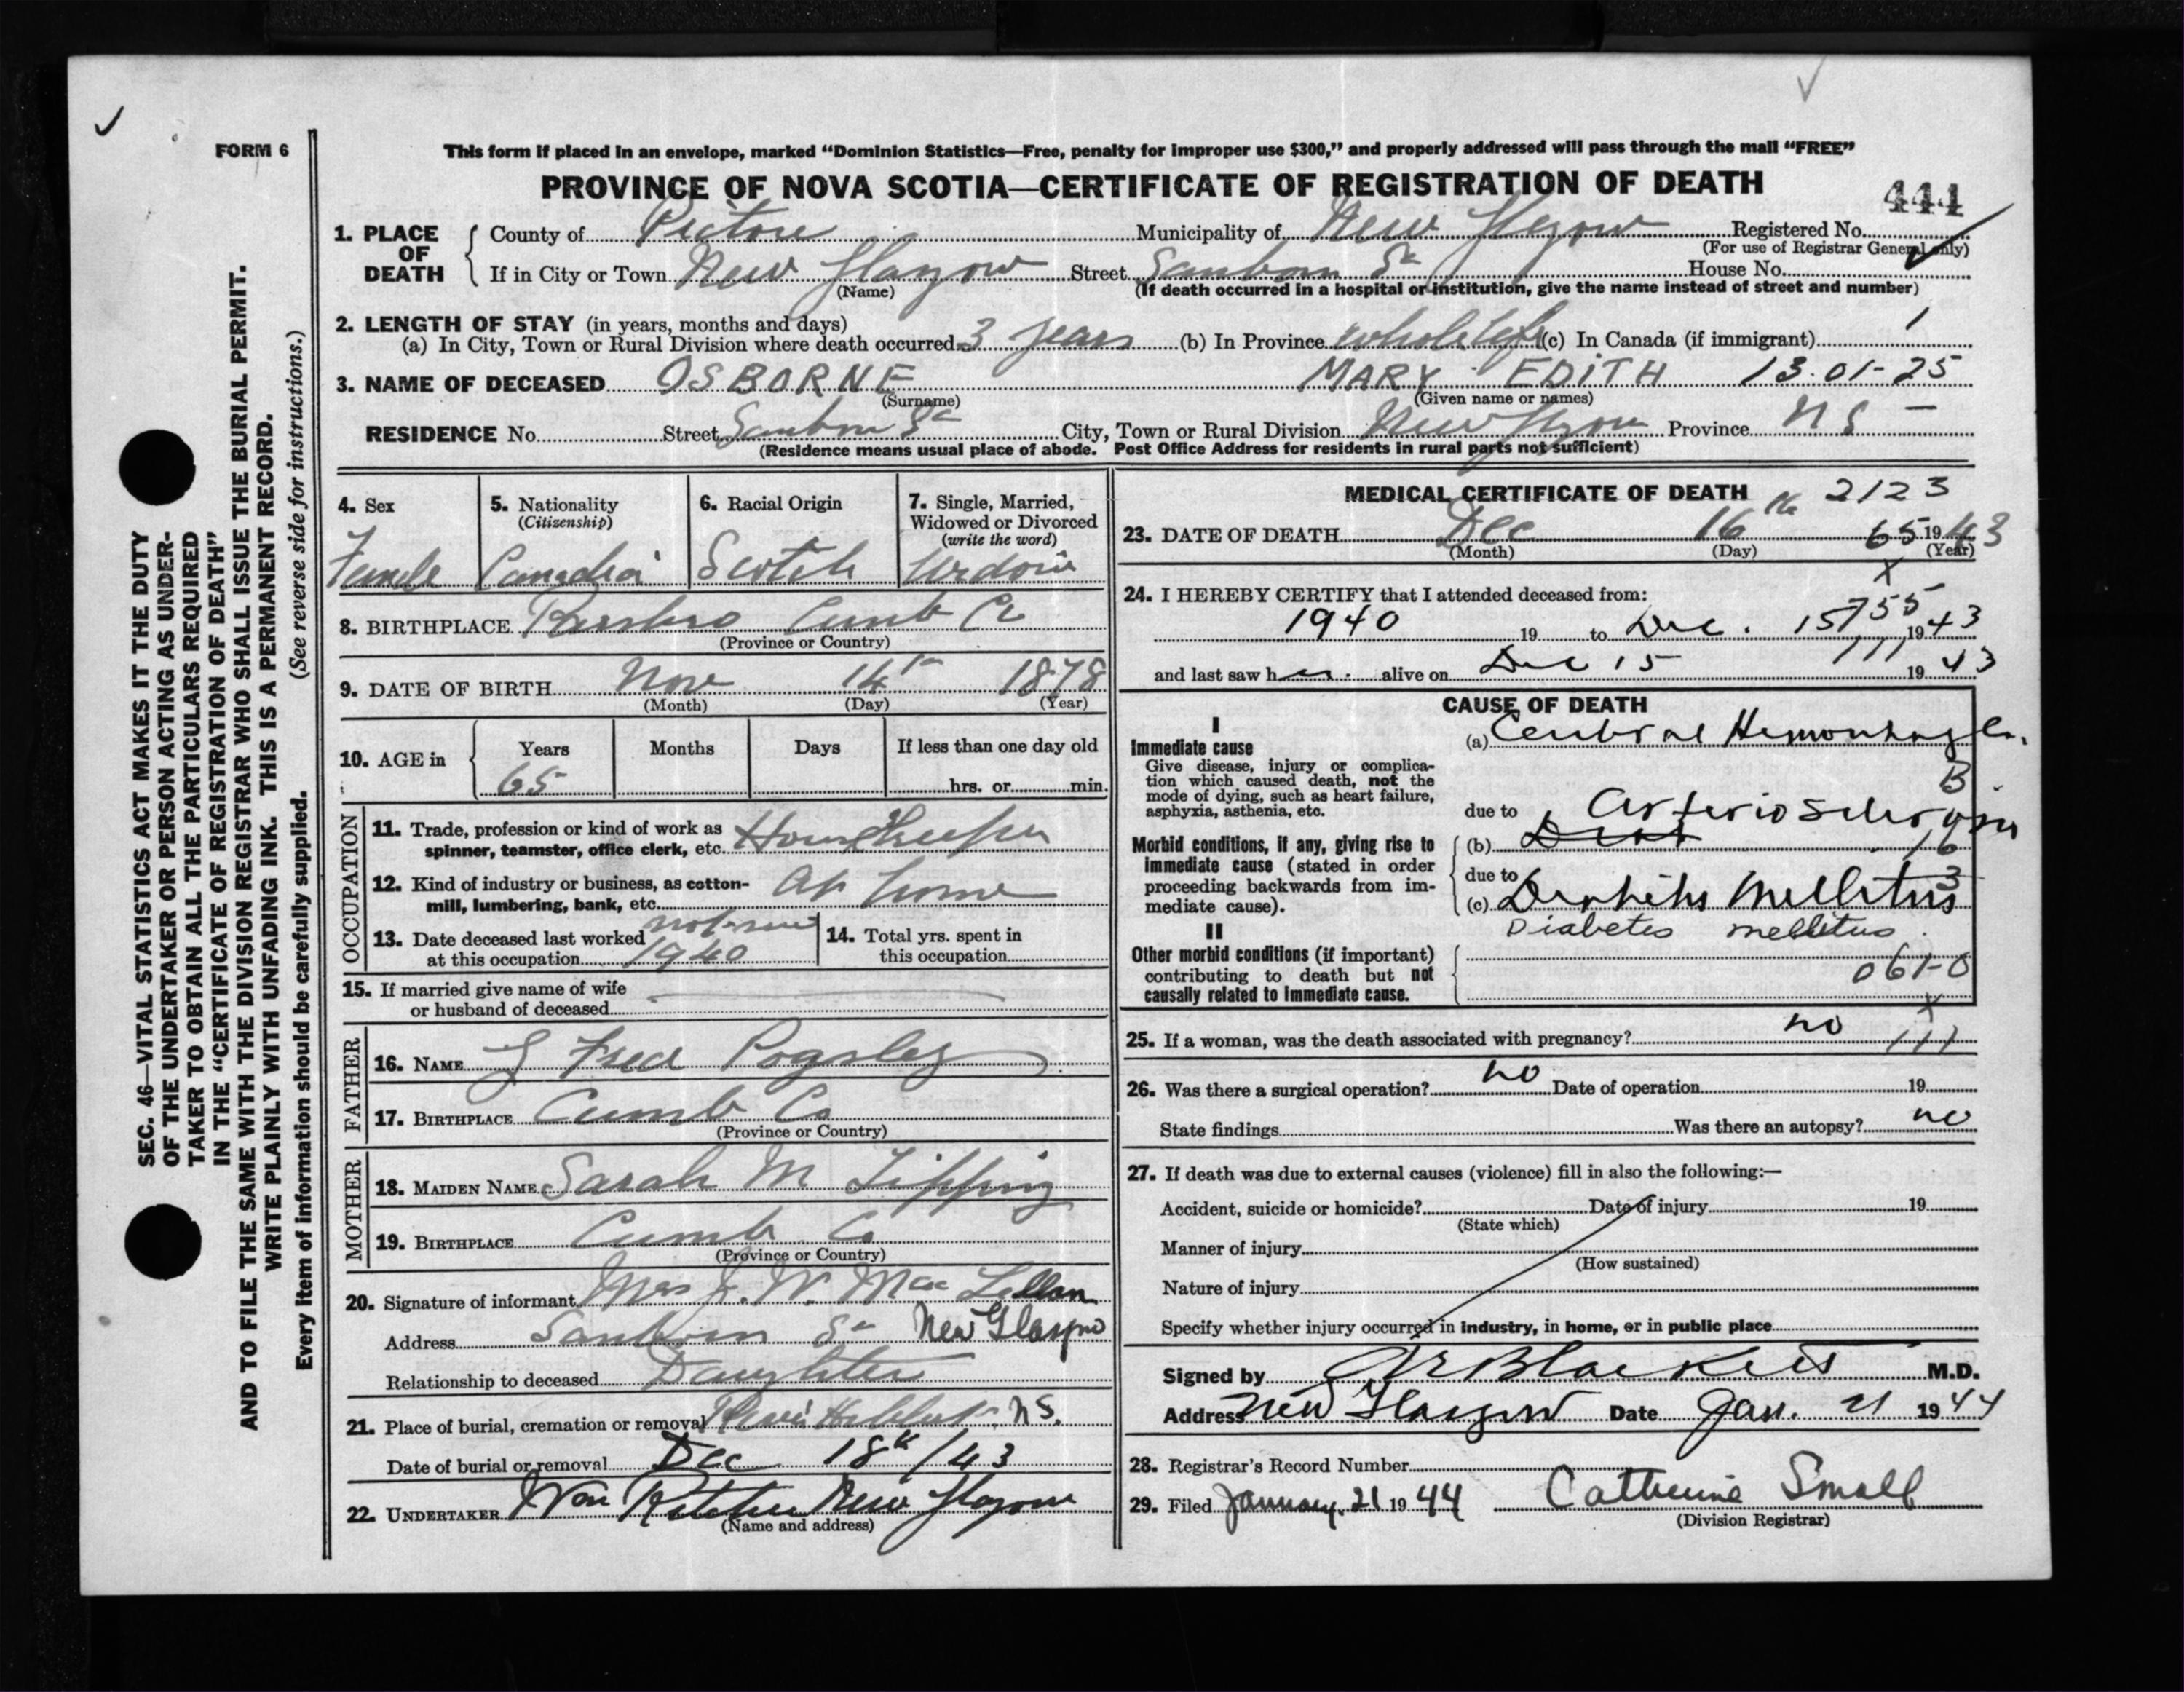 FORM 6
This form if placed in an envelope, marked “Dominion Statistics—Free, penalty for improper use $300,” and properly addressed will pass through the mail “FREE”
PROVINCE OF NOVA SCOTIA—CERTIFICATE OF REGISTRATION OF DEATH
444
1. PLACE OF DEATH
County of Pictou Municipality of New Glasgow Registered No.
(For use of Registrar General only)
If in City or Town New Glasgow Street House No.
(Name) (If death occurred in a hospital or institution, give the name instead of street and number)
2. LENGTH OF STAY (in years, months and days)
(a) In City, Town or Rural Division where death occurred 3 years (b) In Province whole life (c) In Canada (if immigrant) 1
3. NAME OF DECEASED OSBORNE MARY EDITH 13.01-25
(Surname) (Given name or names)
RESIDENCE No. Street City, Town or Rural Division New Glasgow Province N S —
(Residence means usual place of abode. Post Office Address for residents in rural parts not sufficient)
4. Sex
Female
5. Nationality
(Citizenship)
Canadian
6. Racial Origin
Scotch
7. Single, Married,
Widowed or Divorced
(write the word)
Widow
8. BIRTHPLACE Parrsboro Cumb Co
(Province or Country)
9. DATE OF BIRTH Nov 14 1878
(Month) (Day) (Year)
10. AGE in Years Months Days If less than one day old
65 hrs. or min.
OCCUPATION
11. Trade, profession or kind of work as
spinner, teamster, office clerk, etc. Housekeeper
12. Kind of industry or business, as cotton-
mill, lumbering, bank, etc. At home
13. Date deceased last worked
at this occupation 1940
14. Total yrs. spent in
this occupation
15. If married give name of wife
or husband of deceased
FATHER
16. NAME Fred Pugsley
17. BIRTHPLACE Cumb Co
(Province or Country)
MOTHER
18. MAIDEN NAME Sarah M Tipping
19. BIRTHPLACE Cumb Co
(Province or Country)
20. Signature of informant Mrs J. W. Mac Lellan
Address New Glasgow
Relationship to deceased Daughter
21. Place of burial, cremation or removal N.S.
Date of burial or removal Dec 18th/43
22. UNDERTAKER Wm New Glasgow
(Name and address)
MEDICAL CERTIFICATE OF DEATH 2123
23. DATE OF DEATH Dec 16th 65 19 43
(Month) (Day) (Year)
x
24. I HEREBY CERTIFY that I attended deceased from:
755
1940 19 to Dec. 15 19 43
111
and last saw her alive on Dec 15 19 43
CAUSE OF DEATH
I
Immediate cause
Give disease, injury or complica-
tion which caused death, not the
mode of dying, such as heart failure,
asphyxia, asthenia, etc.
(a) Cerebral Hemorrhage
B
due to Arteriosclerosis
Morbid conditions, if any, giving rise to
immediate cause (stated in order
proceeding backwards from im-
mediate cause).
(b) 16
due to 3
(c) Diabetes Mellitus
Diabetes mellitus
II
Other morbid conditions (if important)
contributing to death but not
causally related to immediate cause.
061-0
x
25. If a woman, was the death associated with pregnancy? no 111
26. Was there a surgical operation? no Date of operation 19
State findings Was there an autopsy? no
27. If death was due to external causes (violence) fill in also the following:—
Accident, suicide or homicide? Date of injury 19
(State which)
Manner of injury
(How sustained)
Nature of injury
Specify whether injury occurred in industry, in home, or in public place
Signed by M.D.
Address New Glasgow Date Jan. 21 19 44
28. Registrar's Record Number
29. Filed January 21 19 44 Catherine Small
(Division Registrar)
SEC. 46—VITAL STATISTICS ACT MAKES IT THE DUTY
OF THE UNDERTAKER OR PERSON ACTING AS UNDER-
TAKER TO OBTAIN ALL THE PARTICULARS REQUIRED
IN THE “CERTIFICATE OF REGISTRATION OF DEATH”
AND TO FILE THE SAME WITH THE DIVISION REGISTRAR WHO SHALL ISSUE THE BURIAL PERMIT.
WRITE PLAINLY WITH UNFADING INK. THIS IS A PERMANENT RECORD.
Every item of information should be carefully supplied. (See reverse side for instructions.)